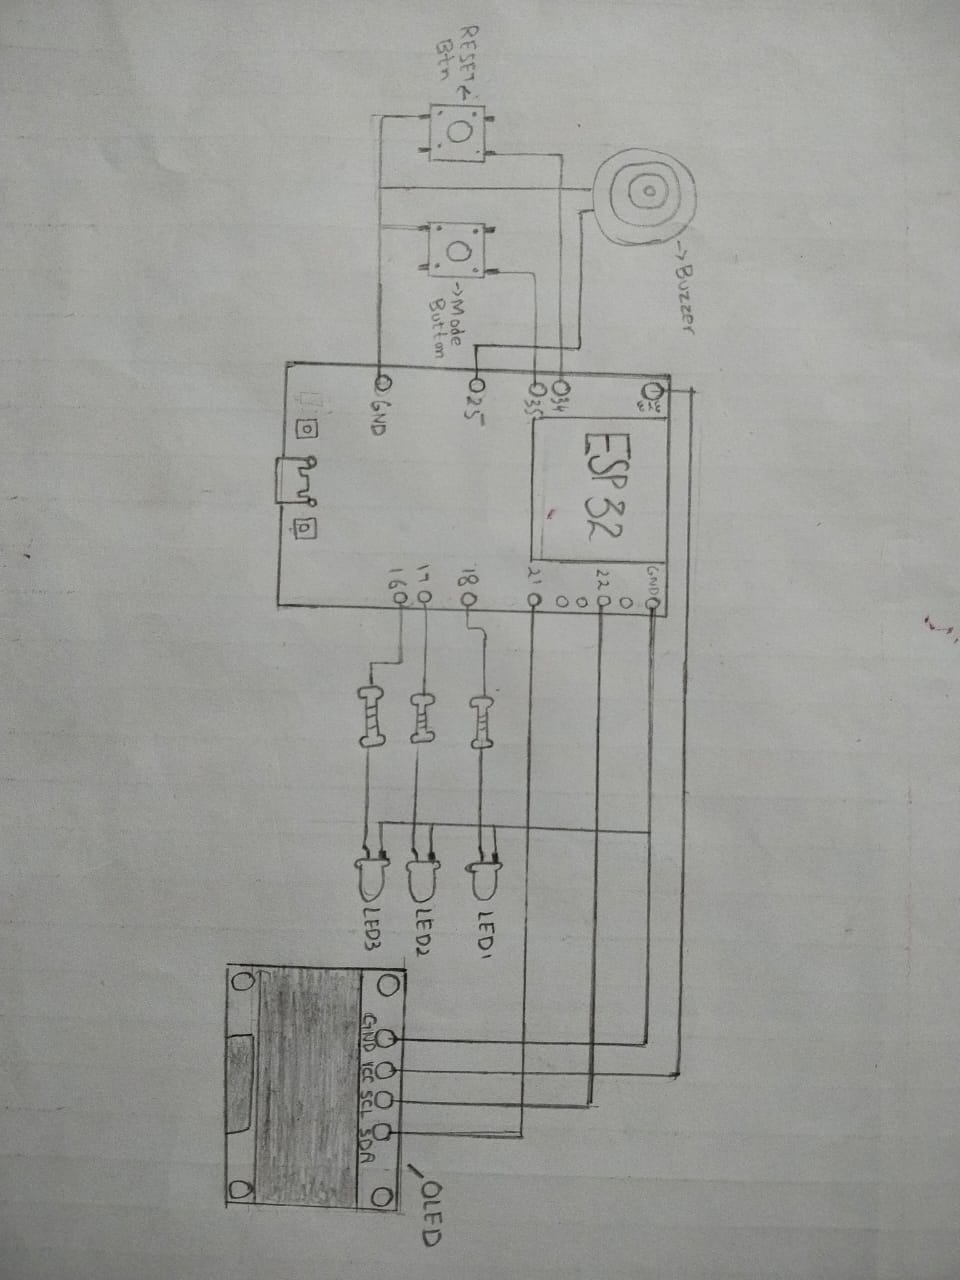 RESET
Btn
→Buzzer
→Mode
Button
GND
25
35
34
3v3
ESP 32
16
17
18
21
22
GND
LED3
LED2
LED1
GND
VCC
SCL
SDA
OLED